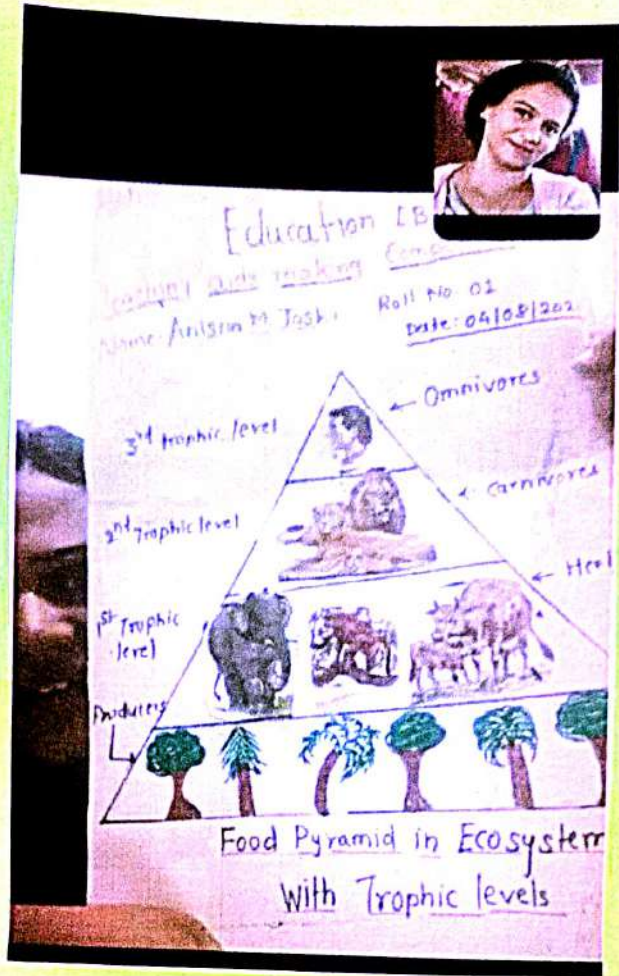 Education (B
Teaching aids making
Name: M Joshi Roll No. 01
Date: 04/08/202
Omnivores
3rd trophic level
Carnivores
2nd Trophic level
Her
1st Trophic
level
Producers
Food Pyramid in Ecosystem
With Trophic levels